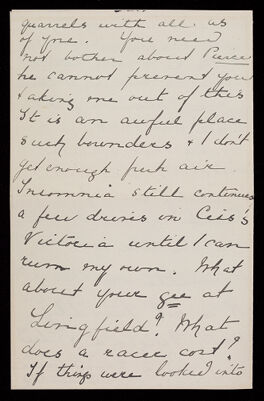 quarrels with all. us
of yre. You need
not bother about Pierce
he cannot prevent you
taking me out of this
It is an awful place
such bounders & I don't
get enough fresh air.
Insomnia still continues
a few drives in Ciss's
Victoria until I can
run my own. What
about your gee at
Lingfield? What
does a racer cost?
If things were looked into